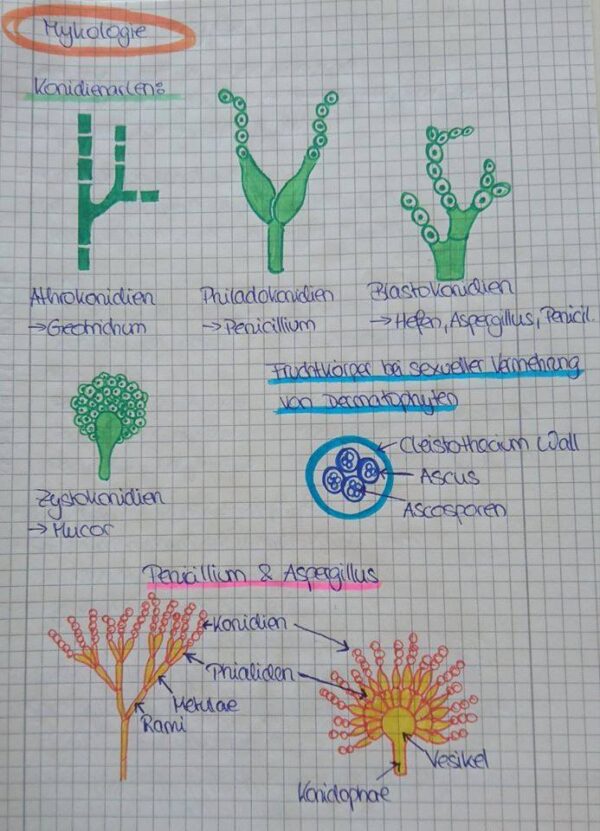 Mykologie
Konidienarten:
Athrokonidien
→Geotrichum
Philadokonidien
→Penicillium
Blastokonidien
→Hefen, Aspergillus, Penicil.
Fruchtkörper bei sexueller Vermehrung
von Dermatophyten
Cleistothecium Wall
Ascus
Ascosporen
Zystokonidien
→Mucor
Penicillium & Aspergillus
Konidien
Phialiden
Metulae
Rami
Vesikel
Konidophae